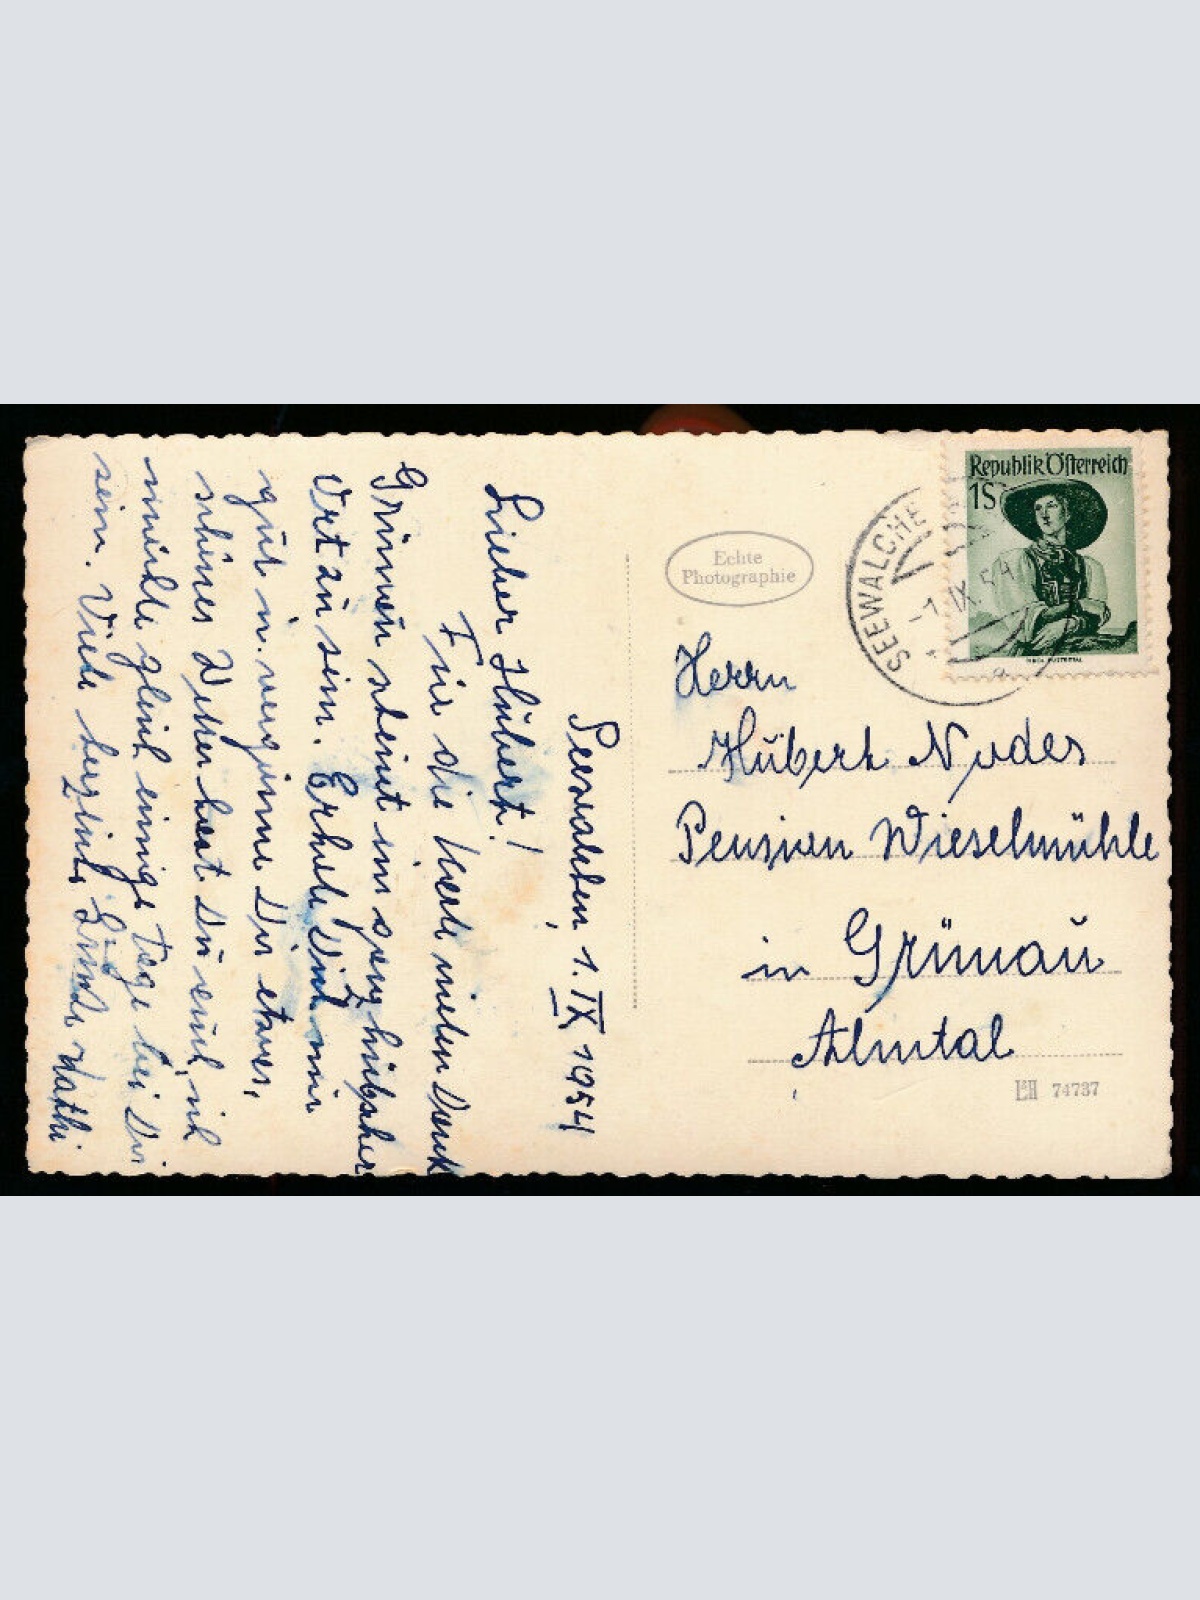 Seewalchen, 1. IX 1954
Lieber Hubert!
Für die Karte vielen Dank
Grünau scheint ein ganz hübscher
Ort zu sein. Erhole Dich nur
gut u. vergönne Dir etwas,
schönes Wetter hast Du auch, ich
möchte gleich einige Tage bei Dir
sein. Viele herzliche Grüße Kathi
Echte
Photographie
Republik Österreich
1S
SEEWALCHE
-1. IX. 54
a
Herrn
Hubert Nodes
Pension Wieselmühle
in Grünau
Almtal
74737